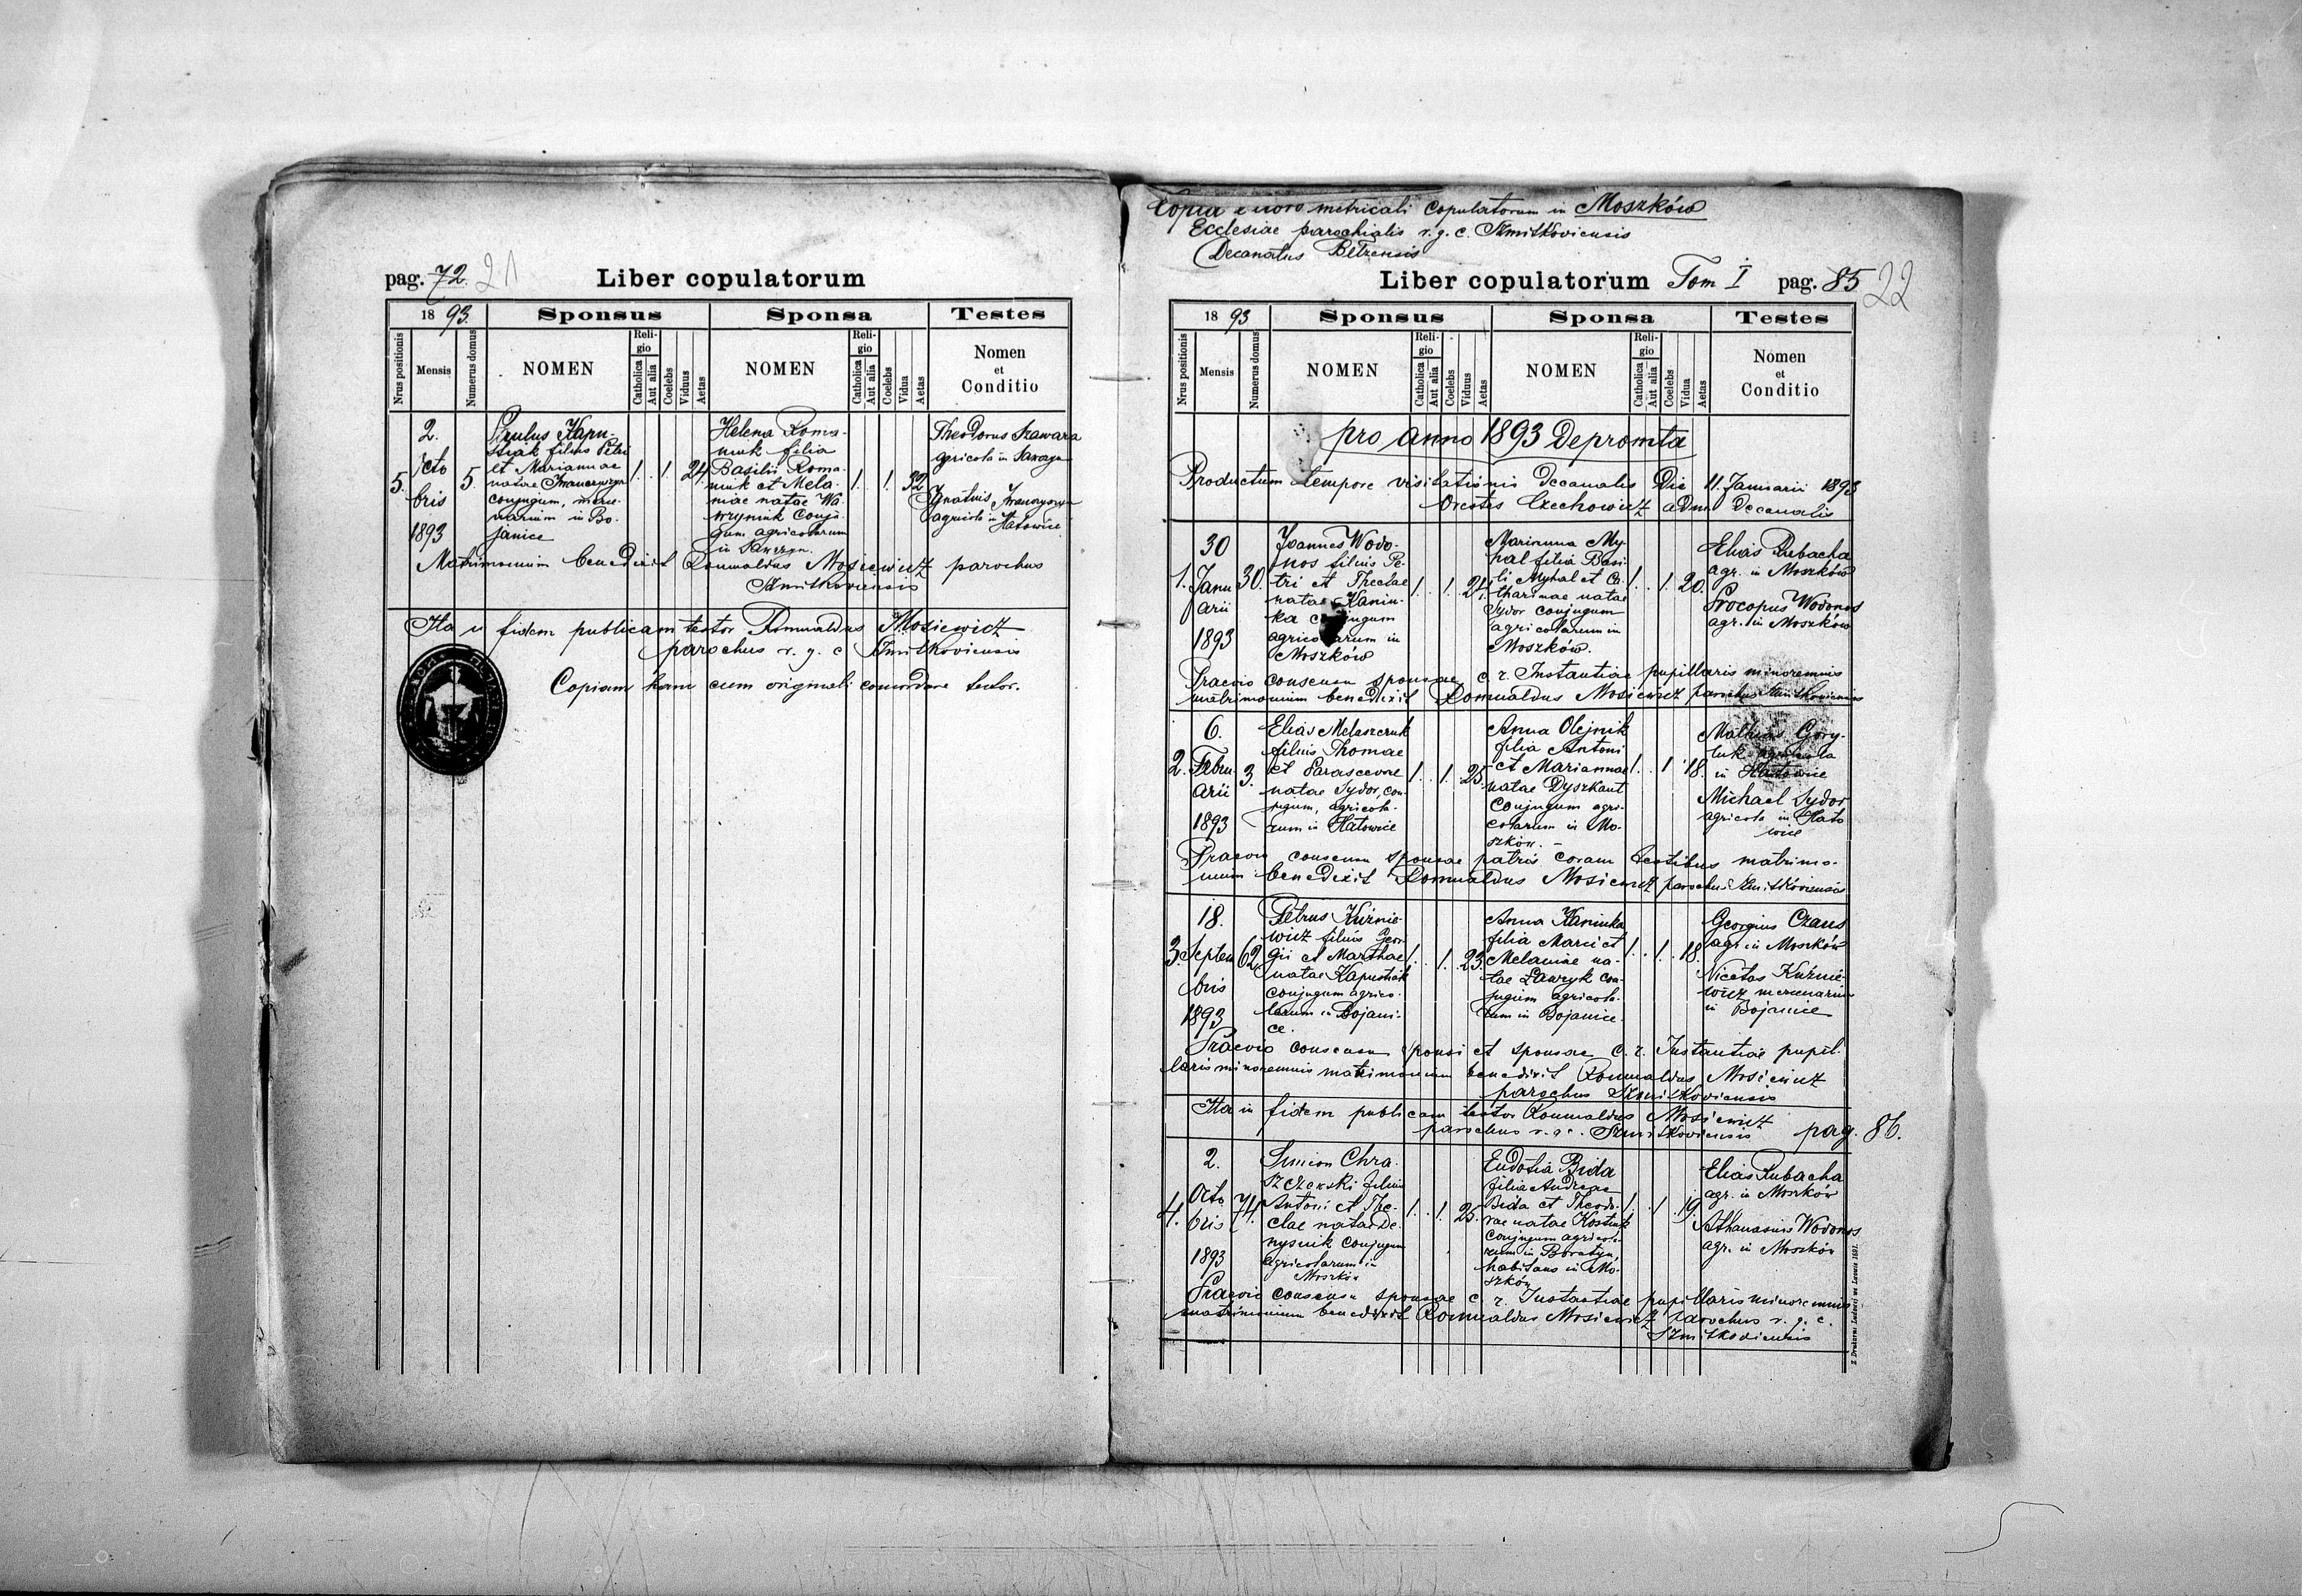 pag. 72. 21
Liber copulatorum
18 93.
Sponsus
Sponsa
Testes
Nrus positionis
Mensis
Numerus domus
NOMEN
Religio
Catholica
Aut alia
Coelebs
Viduus
Aetas
NOMEN
Religio
Catholica
Aut alia
Coelebs
Vidua
Aetas
Nomen
et
Conditio
5.
2.
Octo
bris
1893
5.
Paulus Kapu-
stiak filius Petri
et Mariannae
natae Iwanczyszyn
conjugum, merce-
narium in Bo-
janice
1. . 1 24
Helena Roma-
niuk filia
Basilii Roma-
niuk et Mela-
niae natae Wa-
wryniuk conju-
gum agricolarum
in Sawczyn.
1. . 1. 32
Theodorus Szawara
agricola in Sawczyn
Ignatius Iwanczyszyn
agricola in Hatowice
Matrimonium benedixit Romualdus Mosiewicz parochus
Szmitkoviensis
Ita in fidem publicam testor Romualdus Mosiewicz
parochus r. g. c. Szmitkoviensis
Copiam hanc cum originali concordare testor.
Copia e libro metricali Copulatorum in Moszków
Ecclesiae parochialis r. g. c. Szmitkoviensis
Decanatus Belzensis
Liber copulatorum Tom I pag. 85 22
18 93
Sponsus
Sponsa
Testes
Nrus positionis
Mensis
Numerus domus
NOMEN
Religio
Catholica
Aut alia
Coelebs
Viduus
Aetas
NOMEN
Religio
Catholica
Aut alia
Coelebs
Vidua
Aetas
Nomen
et
Conditio
pro anno 1893 depromta
Productum tempore visitationis decanalis die 11. Januarii 1893
Orestes Czechowicz adm. decanalis
1.
30
Janu
arii
1893
30.
Joannes Wodo-
nos filius Pe-
tri et Theclae
natae Kanin-
ka conjugum
agricolarum in
Moszków
1. . 1. 21.
Marianna My-
hal filia Basi-
li Myhal et Ca-
tharinae natae
Sydor conjugum
agricolarum in
Moszków.
1. . 1. 20.
Elias Rubacha
agr. in Moszków
Procopus Wodonos
agr. in Moszków
Praevio consensu sponsae c. r. Instantiae pupillaris minorennis
matrimonium benedixit Romualdus Mosiewicz parochus Szmitkoviensis
2.
6.
Febru
arii
1893
3.
Elias Melaszczuk
filius Thomae
et Parascevae
natae Sydor, con-
jugum, agricola-
rum in Hatowice
1. . 1. 25.
Anna Olejnik
filia Antoni
et Mariannae
natae Dyszkant
conjugum agri-
colarum in Mo-
szków. –
1. . 1 18.
Mathias Gory-
luk agricola
in Hatowice
Michael Sydor
agricola in Hato
wice
Praevio consensu sponsae patris coram testibus matrimo-
nium benedixit Romualdus Mosiewicz parochus Szmitkoviensis
3.
18.
Septem
bris
1893
62
Petrus Kuźnie-
wicz filius Geor-
gii et Marthae
natae Kapustiak
conjugum agrico-
larum in Bojani-
ce.
1. . 1. 23.
Anna Kaninka
filia Marci et
Melaniae na-
tae Ławryk con-
jugum agricola-
rum in Bojanice.
1. . 1. 18.
Georgius Czaus
agr. in Moszków
Nicetas Kuźnie-
wicz mercenarius
in Bojanice
Praevio consensu sponsi et sponsae c. r. Instantiae pupil-
laris minorennis matrimonium benedixit Romualdus Mosiewicz
parochus Szmitkoviensis
Ita in fidem publicam testor Romualdus Mosiewicz
parochus r. g. c. Szmitkoviensis pag. 86.
4.
2.
Octo
bris
1893
74.
Simeon Chra-
szczewski filius
Antoni et The-
clae natae De-
nysiuk conjugum
agricolarum in
Moszków
1. . 1. 25.
Eudotia Bida
filia Andreae
Bida et Theodo-
rae natae Kostiuk
conjugum agricola-
rum in Boratyn,
habitans in Mo-
szków
1. . 1 19.
Elias Rubacha
agr. in Moszków
Athanasius Wodonos
agr. in Moszków
Praevio consensu sponsae c. r. Instantiae pupillaris minorennis
matrimonium benedixit Romualdus Mosiewicz parochus r. g. c.
Szmitkoviensis
Z Drukarni Ludowej we Lwowie 1891.